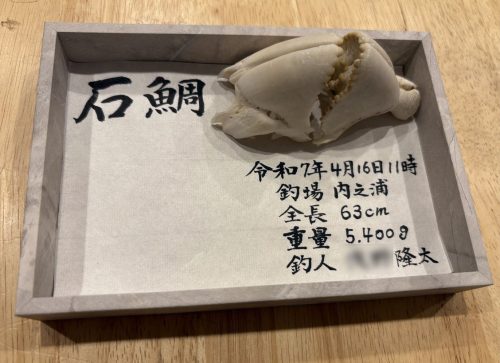 石鯛
令和7年4月16日11時
釣場 内之浦
全長 63cm
重量 5.400g
釣人 隆太